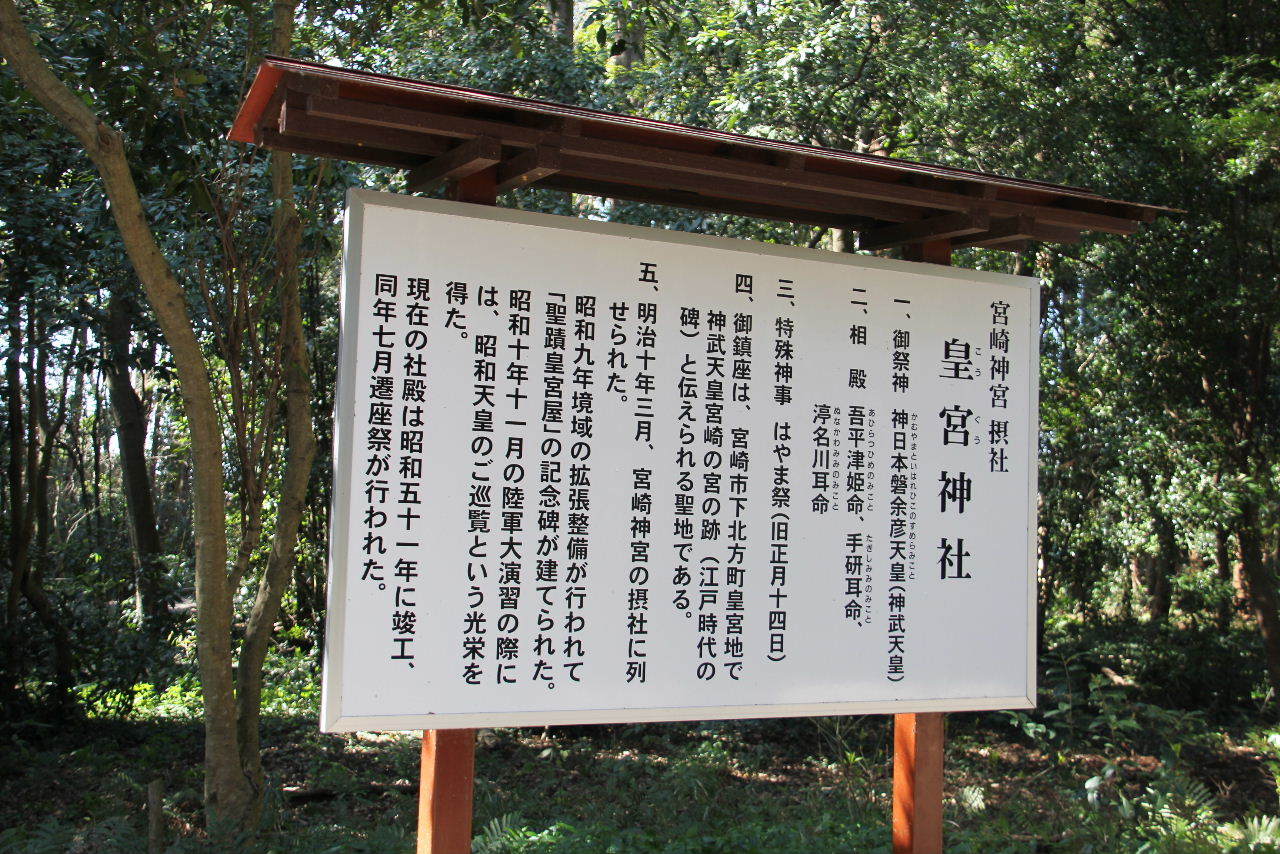 宮崎神宮 摂社
こうぐう
皇宮神社
一、御祭神 神日本磐余彦天皇(神武天皇)
かむやまといはれひこのすめらみこと
二、相殿 吾平津姫命、手研耳命、
あひらつひめのみこと たぎしみみのみこと
渟名川耳命
ぬなかわみみのみこと
三、特殊神事 はやま祭(旧正月十四日)
四、御鎮座は、宮崎市下北方町皇宮地で
神武天皇宮崎の宮の跡(江戸時代の
碑)と伝えられる聖地である。
五、明治十年三月、宮崎神宮の摂社に列
せられた。
昭和九年境域の拡張整備が行われて
「聖蹟皇宮屋」の記念碑が建てられた。
昭和十年十一月の陸軍大演習の際に
は、昭和天皇のご巡覧という光栄を
得た。
現在の社殿は昭和五十一年に竣工、
同年七月遷座祭が行われた。